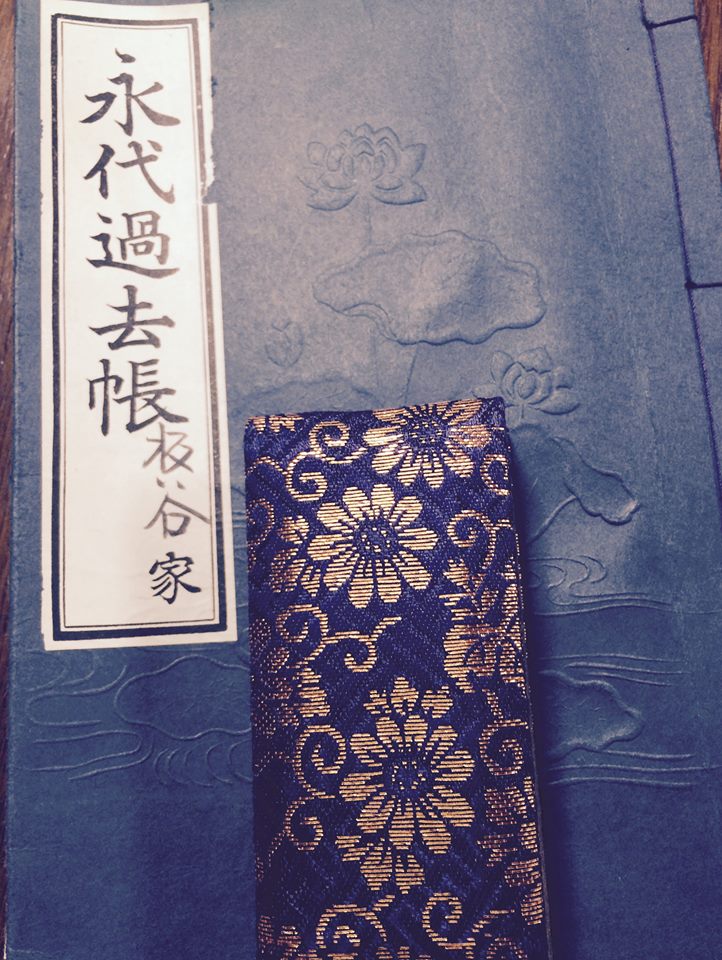 永代過去帳
板谷家